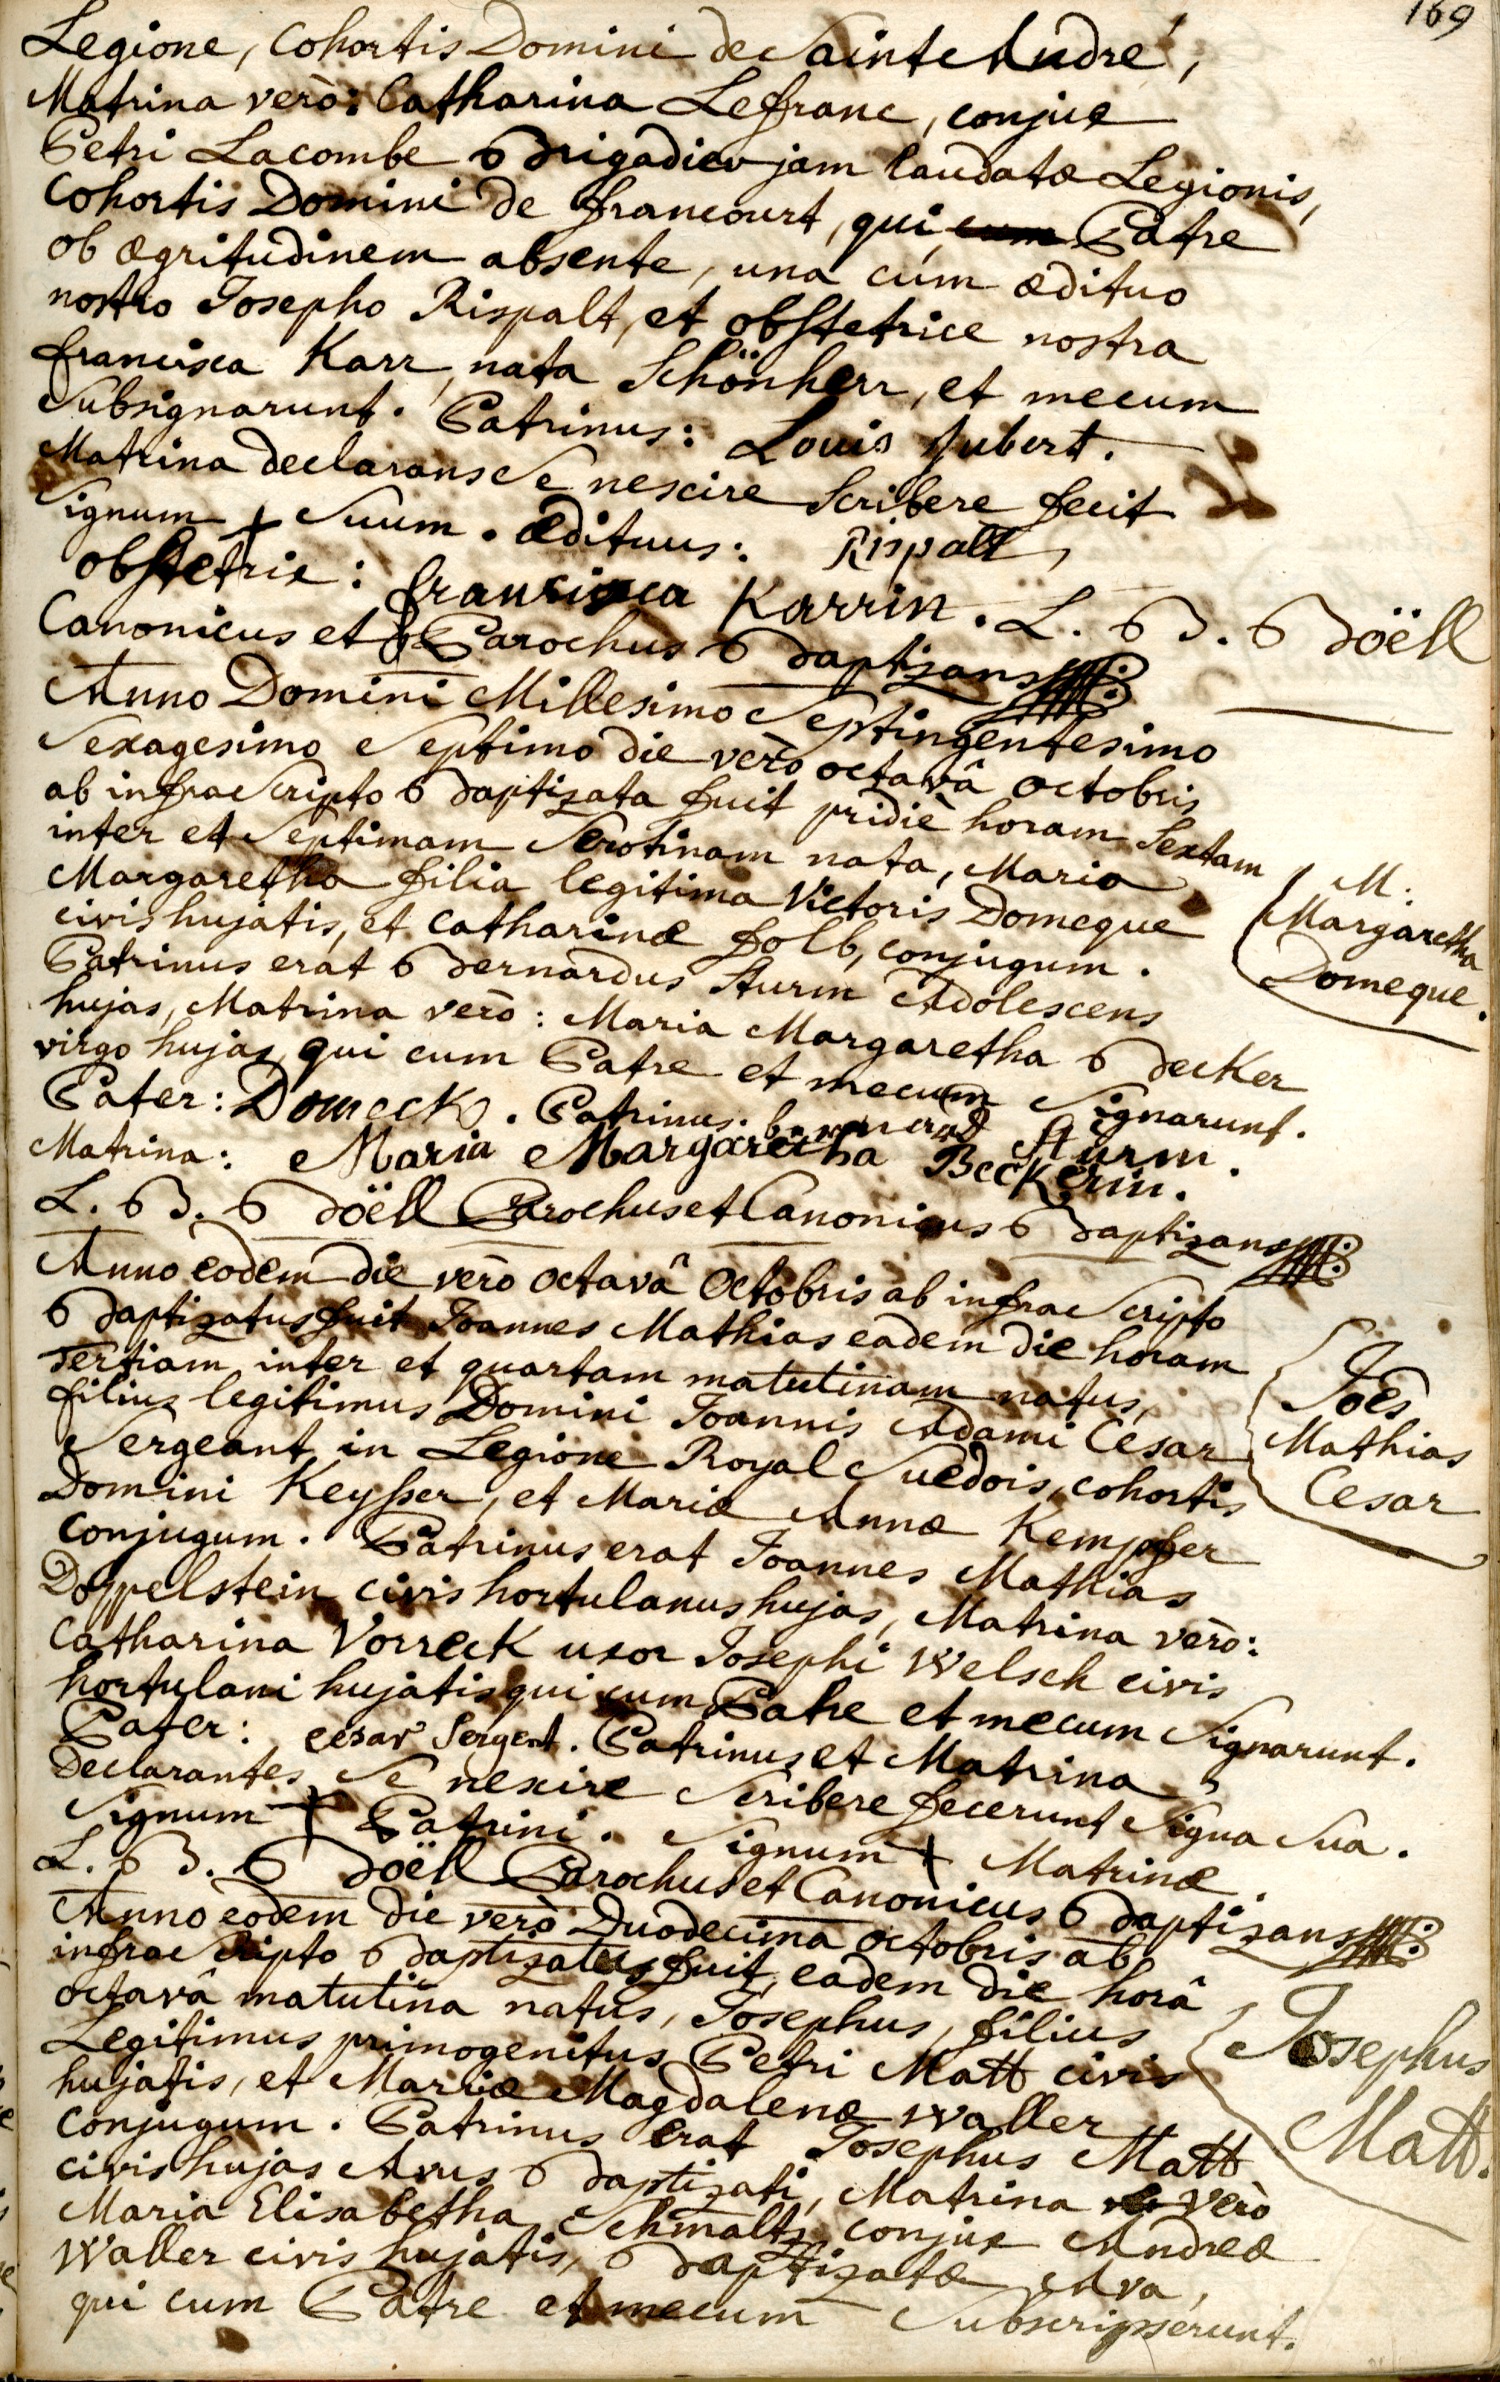 169
Legione, Cohortis Domini de Sainte André,
Matrina verò: Catharina Lefranc, conjux
Petri Lacombe Brigadier jam laudatæ Legionis,
Cohortis Domini de francourt, qui cum Patre
ob ægritudinem absente, una cúm ædituo
nostro Josepho Rispalt, et obstetrice nostra
francisca Karr, nata Schönherr, et mecum
Subsignarunt. Patrinus: Louis Jubert.
Matrina declarans Se nescire Scribere fecit
Signum + Suum. Ædituus: Rispalt,
obstetrix: francisca Karrin. L. B. Boëll
Canonicus et Parochus Baptizans
Anno Domini Millesimo Septingentesimo
Sexagesimo Septimo die verò octavâ octobris
ab infra Scripto Baptizata fuit pridiè horam Sextam
inter et Septimam Serotinam nata, Maria
Margaretha filia legitima Victoris Domeque
civis hujatis, et Catharinæ folb, conjugum.
Patrinus erat Bernardus Sturm Adolescens
hujas, Matrina verò: Maria Margaretha Becker
virgo hujas, qui cum Patre et mecum Signarunt.
Pater: Domeck. Patrinus: bernard Sturm.
Matrina: Maria Margaretha Beckerin.
L. B. Boëll Parochus et Canonicus Baptizans
M.
Margaretha
Domeque.
Anno eodem die verò octavâ Octobris ab infra Scripto
Baptizatus fuit Joannes Mathias eadem die horam
Tertiam inter et quartam matutinam natus,
filius legitimus Domini Joannis Adami Cesar
Sergeant in Legione Royal Suedois, cohortis
Domini Keysser, et Mariæ Annæ Kempffer
conjugum. Patrinus erat Joannes Mathias
Doppelstein civis hortulanus hujas, Matrina verò:
Catharina Vorreck uxor Josephi Welsch civis
hortulani hujatis qui cum Patre et mecum Signarunt.
Pater: cesar Sergent. Patrinus et Matrina
Declarantes Se nescire Scribere fecerunt Signa Sua.
Signum + Patrini. Signum + Matrinæ.
L. B. Boëll Parochus et Canonicus Baptizans
Joês
Mathias
Cesar
Anno eodem die verò Duodecima octobris ab
infra Scripto Baptizatus fuit, eadem die horâ
octavâ matutina natus, Josephus, filius
Legitimus primogenitus Petri Matt civis
hujatis, et Marriæ Magdalenæ Waller
conjugum. Patrinus erat Josephus Matt
civis hujas Avus Baptizati, Matrina verò
Maria Elisabetha Schmaltz conjux Andreæ
Waller civis hujatis, Baptizatæ Ava,
qui cum Patre et mecum Subscripserunt.
Josephus
Matt.